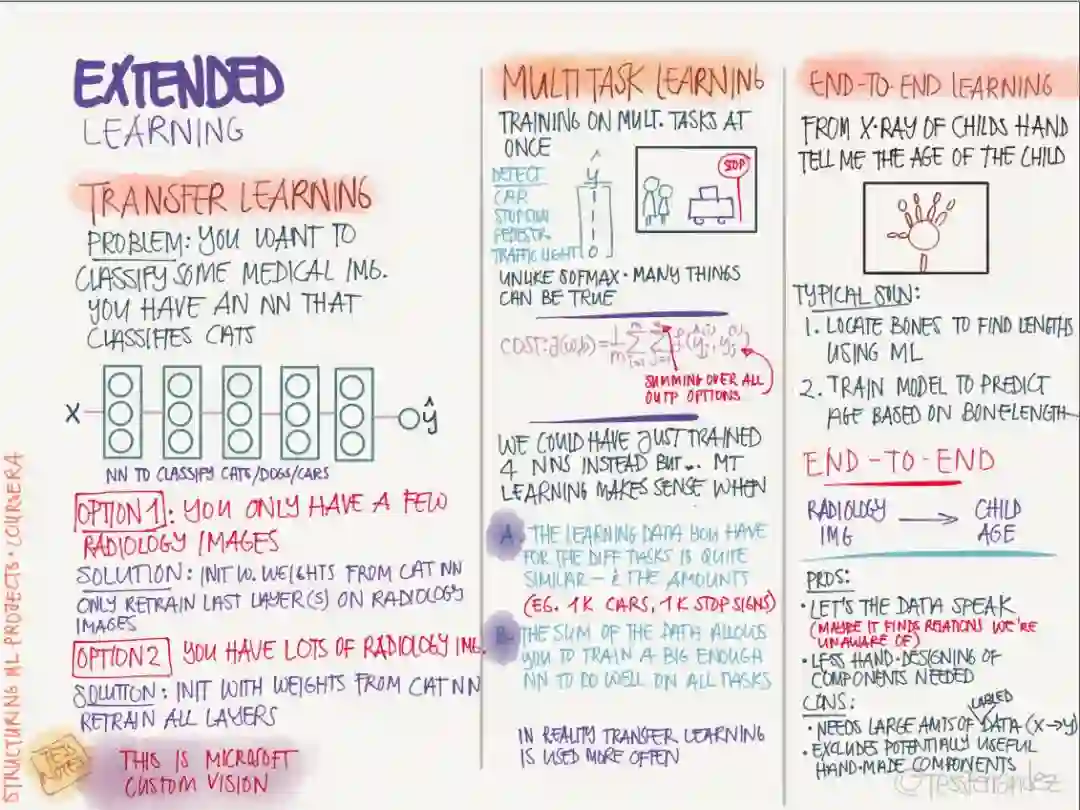 EXTENDED
LEARNING
TRANSFER LEARNING
PROBLEM: YOU WANT TO
CLASSIFY SOME MEDICAL IMG.
YOU HAVE AN NN THAT
CLASSIFIES CATS
X
ŷ
NN TO CLASSIFY CATS/DOGS/CARS
OPTION 1: YOU ONLY HAVE A FEW
RADIOLOGY IMAGES
SOLUTION: INIT W. WEIGHTS FROM CAT NN
ONLY RETRAIN LAST LAYER(S) ON RADIOLOGY
IMAGES
OPTION 2 YOU HAVE LOTS OF RADIOLOGY IMG.
SOLUTION: INIT WITH WEIGHTS FROM CAT NN
RETRAIN ALL LAYERS
THIS IS MICROSOFT
CUSTOM VISION
TESS
NOTES
STRUCTURING ML PROJECTS · COURSERA
MULTI TASK LEARNING
TRAINING ON MULT. TASKS AT
ONCE
DETECT ŷ
CAR 1
STOPSIGN 1
PEDESTR. 1
TRAFFIC LIGHT 0
STOP
UNLIKE SOFMAX · MANY THINGS
CAN BE TRUE
COST: J(w,b) =
SUMMING OVER ALL
OUTP OPTIONS
WE COULD HAVE JUST TRAINED
4 NNS INSTEAD BUT... MT
LEARNING MAKES SENSE WHEN
A. THE LEARNING DATA YOU HAVE
FOR THE DIFF TASKS IS QUITE
SIMILAR – & THE AMOUNTS
(EG. 1K CARS, 1K STOP SIGNS)
B. THE SUM OF THE DATA ALLOWS
YOU TO TRAIN A BIG ENOUGH
NN TO DO WELL ON ALL TASKS
IN REALITY TRANSFER LEARNING
IS USED MORE OFTEN
END-TO-END LEARNING
FROM X·RAY OF CHILDS HAND
TELL ME THE AGE OF THE CHILD
TYPICAL SOLN:
1. LOCATE BONES TO FIND LENGTHS
USING ML
2. TRAIN MODEL TO PREDICT
AGE BASED ON BONELENGTH
END-TO-END
RADIOLOGY → CHILD
IMG AGE
PROS:
· LET'S THE DATA SPEAK
(MAYBE IT FINDS RELATIONS WE'RE
UNAWARE OF)
· LESS HAND-DESIGNING OF
COMPONENTS NEEDED
CONS:
LABLED
· NEEDS LARGE AMTS OF DATA (X→Y)
· EXCLUDES POTENTIALLY USEFUL
HAND-MADE COMPONENTS
@TessFerandez